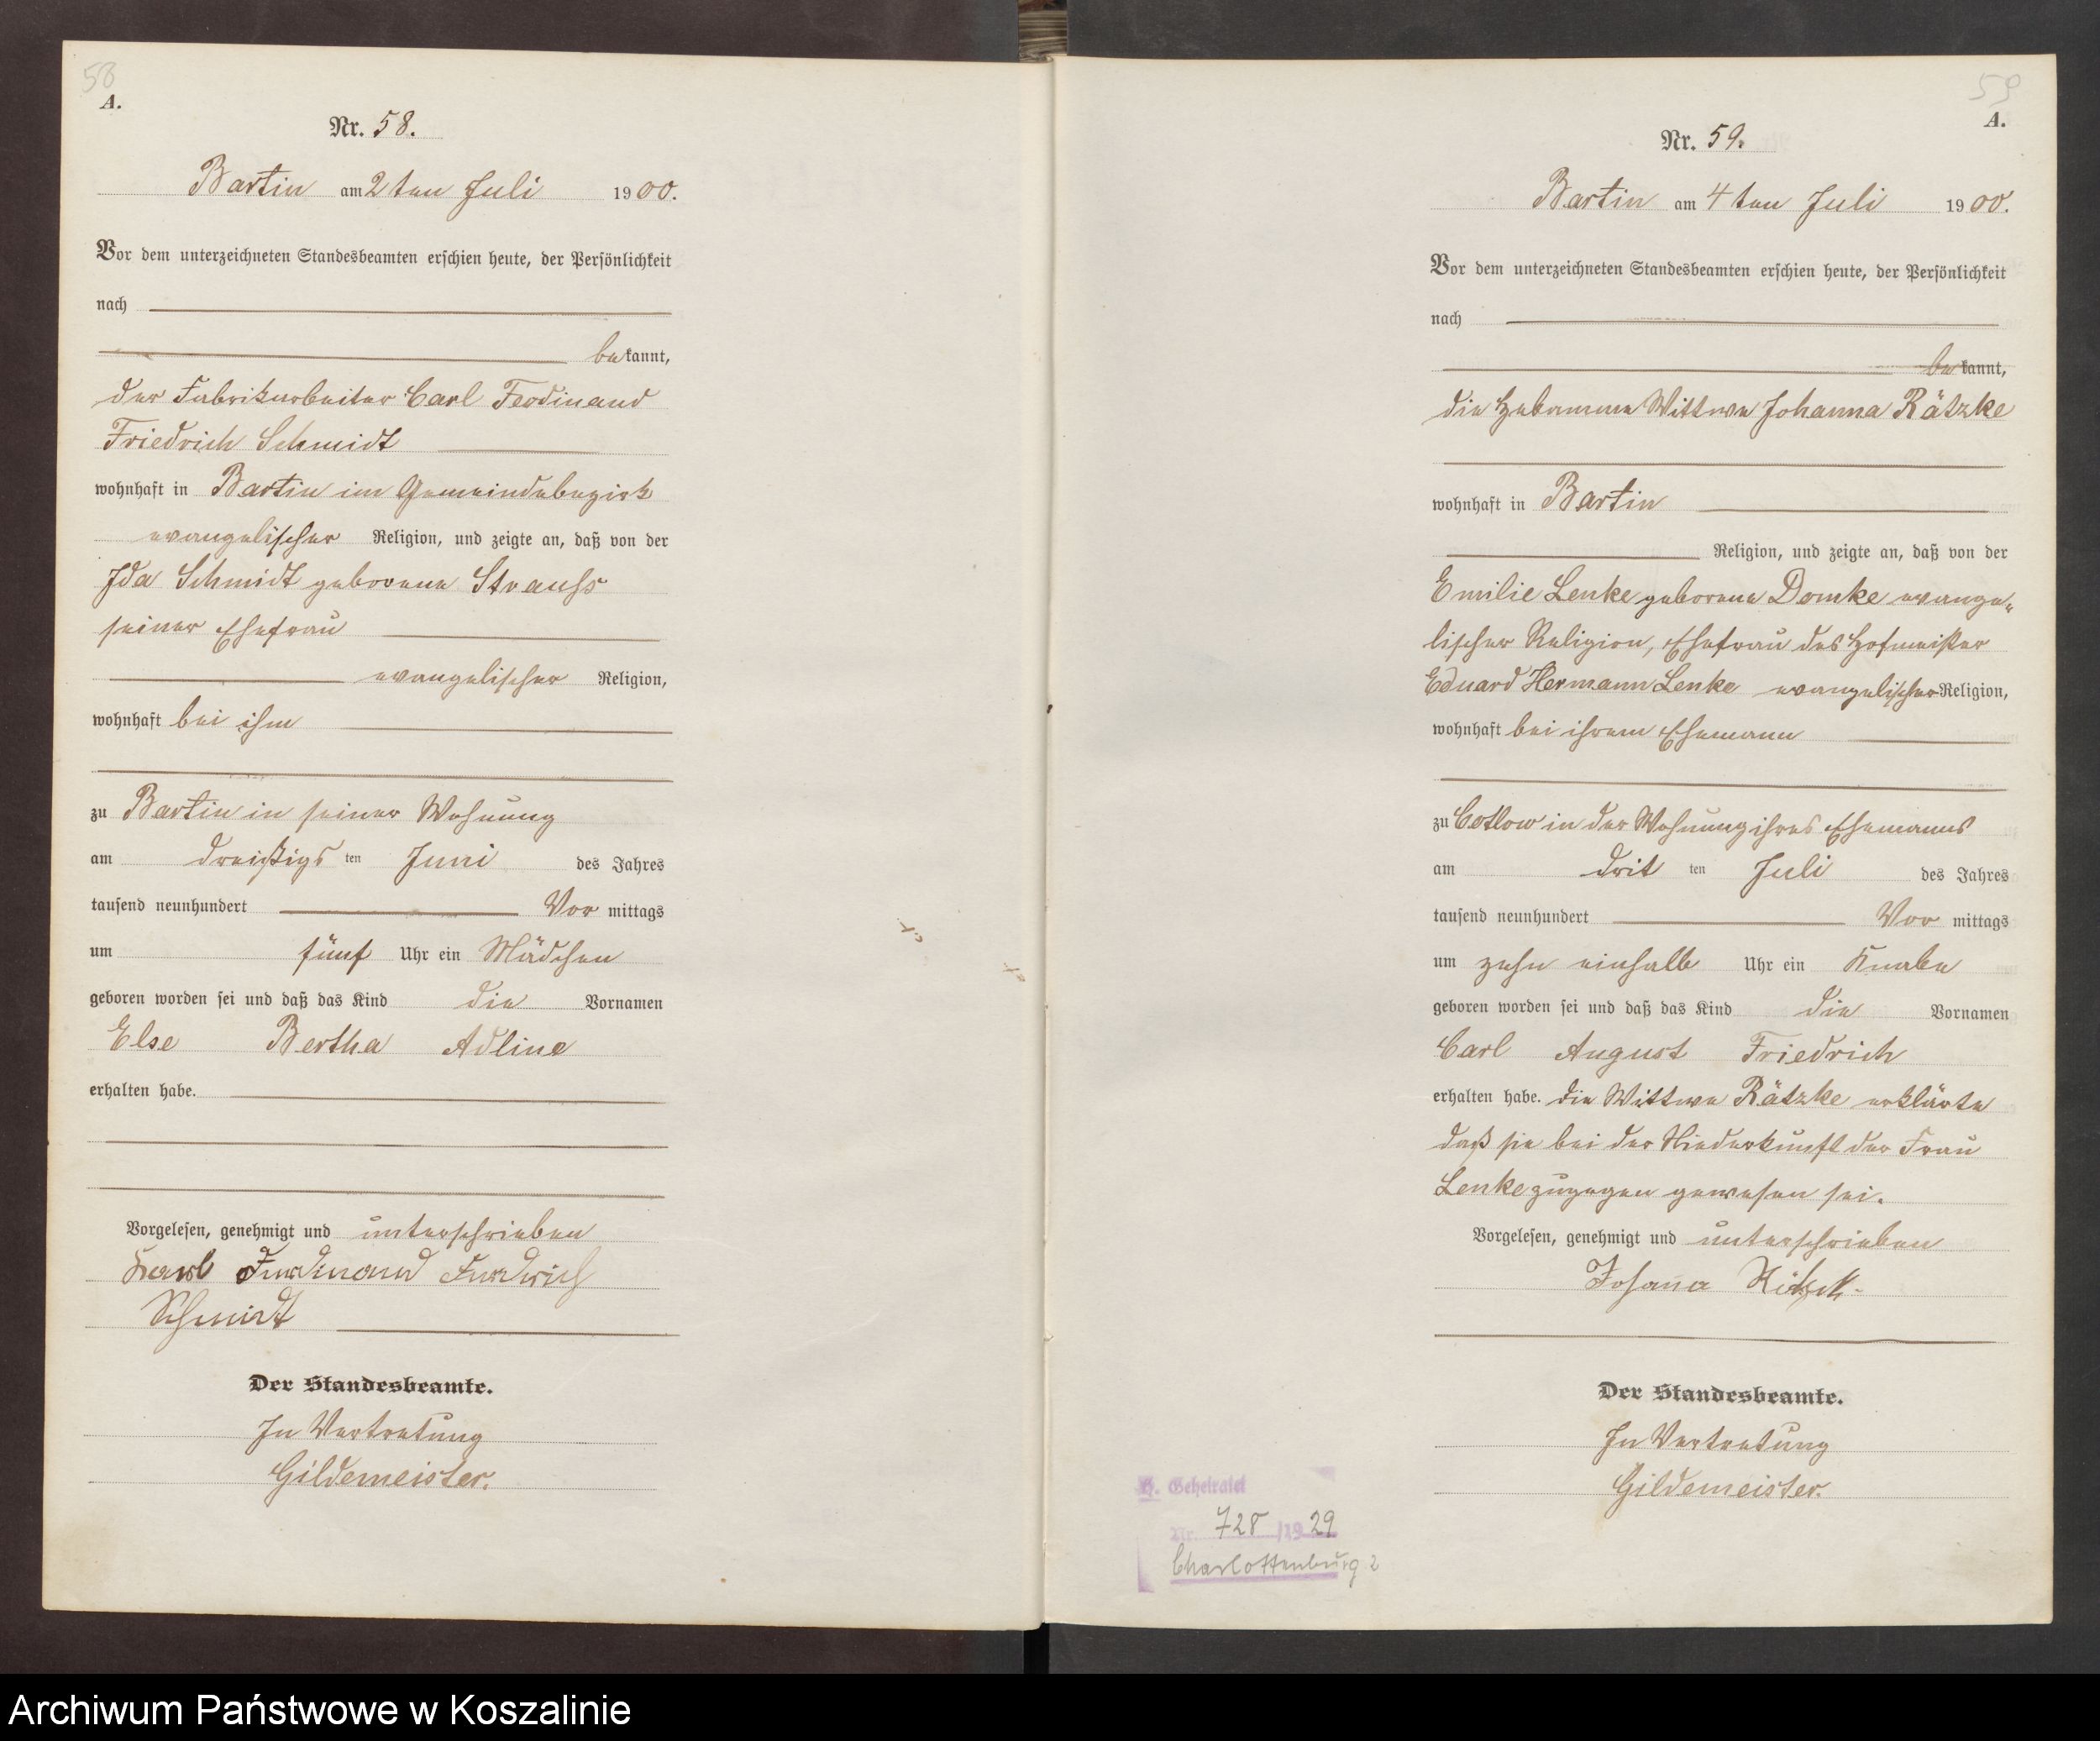 58
A.
Nr. 58.
Bartin am 2ten Juli 1900.
Vor dem unterzeichneten Standesbeamten erschien heute, der Persönlichkeit
nach
bekannt,
der Fabrikarbeiter Carl Ferdinand
Friedrich Schmidt
wohnhaft in Bartin im Gemeindebezirk
evangelischer Religion, und zeigte an, daß von der
Ida Schmidt geborene Strauss
seiner Ehefrau
evangelischer Religion,
wohnhaft bei ihm
zu Bartin in seiner Wohnung
am dreißigsten Juni des Jahres
tausend neunhundert Vormittags
um fünf Uhr ein Mädchen
geboren worden sei und daß das Kind die Vornamen
Else Bertha Adline
erhalten habe.
Vorgelesen, genehmigt und unterschrieben
Karl Ferdinand Friedrich
Schmidt
Der Standesbeamte.
In Vertretung
Gildemeister.
59
A.
Nr. 59.
Bartin am 4ten Juli 1900.
Vor dem unterzeichneten Standesbeamten erschien heute, der Persönlichkeit
nach
bekannt,
die Hebamme Wittwe Johanna Rätzke
wohnhaft in Bartin
Religion, und zeigte an, daß von der
Emilie Lenke geborene Domke evange„
lischer Religion, Ehefrau des Hofmeister
Eduard Hermann Lenke evangelischer Religion,
wohnhaft bei ihrem Ehemann
zu Cotlow in der Wohnung ihres Ehemanns
am dritten Juli des Jahres
tausend neunhundert Vormittags
um zehn einhalb Uhr ein Knabe
geboren worden sei und daß das Kind die Vornamen
Carl August Friedrich
erhalten habe. Die Wittwe Rätzke erklärte
daß sie bei der Niederkunft der Frau
Lenke zugegen gewesen sei.
Vorgelesen, genehmigt und unterschrieben
Johana
Der Standesbeamte.
In Vertretung
Gildemeister.
Geheiratet
Nr. 728 /1929
Charlottenburg 2
Archiwum Państwowe w Koszalinie